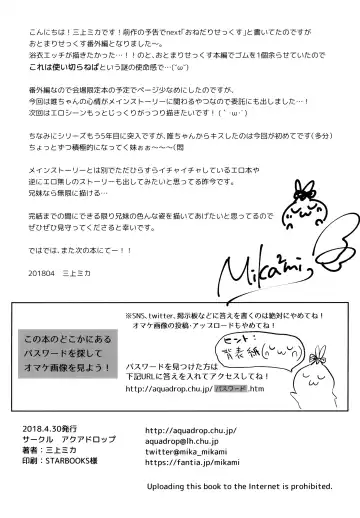 こんにちは！三上ミカです！前作の予告でnext「おねだりせっくす」と書いてたのですが
おとまりせっくす番外編となりました〜。
浴衣エッチが描きたかった…！！のと、おとまりせっくす本編でゴムを1個余らせていたので
これは使い切らねばという謎の使命感で…(˘ω˘)
番外編なので会場限定本の予定でページ少なめにしたのですが、
今回は雛ちゃんの心情がメインストーリーに関わるやつなので委託にも出しました…！
次回はエロシーンもっとじっくりがっつり描きたいです！(｀･ω･´)
ちなみにシリーズもう5年目に突入ですが、雛ちゃんからキスしたのは今回が初めてです(多分)
ちょっとずつ積極的になってく妹ぉぉ〜〜〜(悶
メインストーリーとは別でただひたすらイチャイチャしているエロ本や
逆にエロ無しのストーリーも出してみたいと思ってる昨今です。
兄妹なら無限に描ける…
完結までの間にできる限り兄妹の色んな姿を描いてあげたいと思ってるので
ぜひぜひ見守ってくださると幸いです。
ではでは、また次の本にてー！！
201804　三上ミカ
Mikami
この本のどこかにある
パスワードを探して
オマケ画像を見よう！
※SNS、twitter、掲示板などに答えを書くのは絶対にやめてね！
オマケ画像の投稿・アップロードもやめてね！
ヒント：
背表紙
パスワードを見つけた方は
下記URLに答えを入れてアクセスしてね！
http://aquadrop.chu.jp/パスワード.htm
2018.4.30発行
サークル　アクアドロップ
著者：三上ミカ
印刷：STARBOOKS様
http://aquadrop.chu.jp/
aquadrop@lh.chu.jp
twitter@mika_mikami
https://fantia.jp/mikami
Uploading this book to the Internet is prohibited.